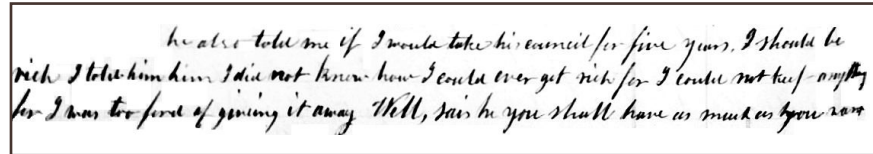 he also told me if I would take his council for five years, I should be
rich I told him him I did not know how I could ever get rich for I could not keep anything
for I was too fond of giving it away Well, sais he you shall have as much as you